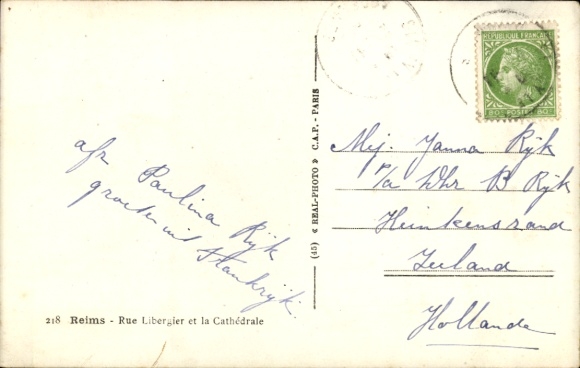 afz Paulina Rijk
groeten uit Frankrijk.
218 Reims - Rue Libergier et la Cathédrale
(45) « REAL-PHOTO » C.A.P. - PARIS
REPUBLIQUE FRANÇAISE
80 POSTES 80
Mej. Janna Rijk
p/a Dhr B Rijk
Heinkenszand
Zeeland
Hollande